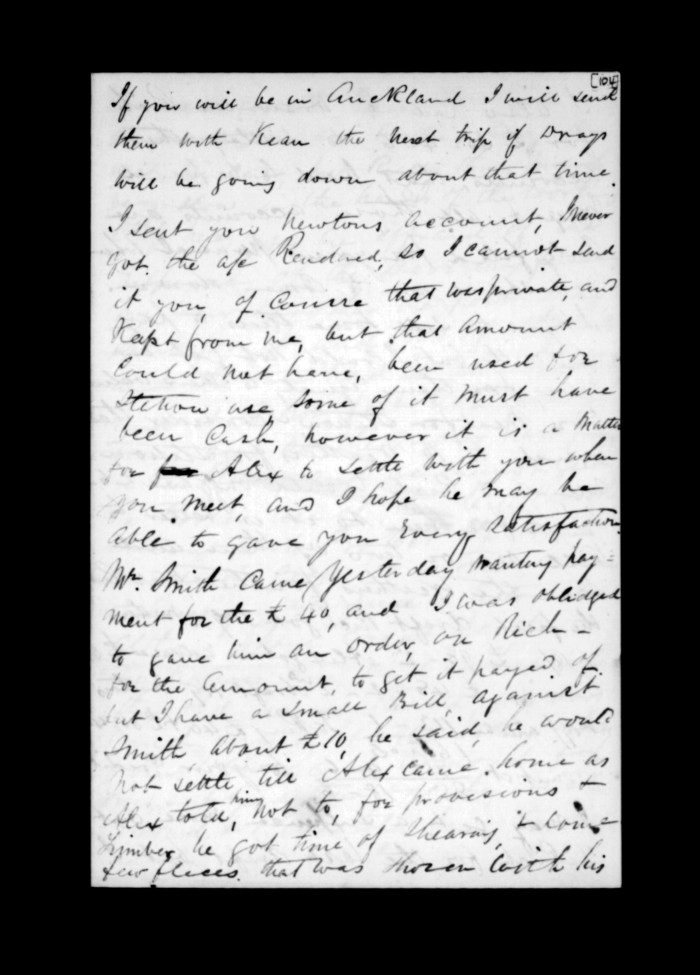 [104]
If you will be in Auckland I will send
them with Kean the next trip if Drays
will be going down about that time.
I sent you Newtons account, I never
got the a/c Rendered, so I cannot send
it you, of Course that was private, and
Kept from me, but that amount
Could not have, been used for
Station use, some of it must have
been Cash, however it is a Matter
for Alex to settle with you when
you meet, and I hope he may be
able to gave you Every satisfaction.
Mr. Smith Came Yesterday wanting pay=
ment for the £40, and I was oblidged
to gave him an order, on Rich-
for the Amount, to get it payed of
but I have a small Bill, against
Smith about £10, he said, he would
not settle till Alex came home as
Alex told him, not to, for provisions &
Timber he got time of Shearing, &
few fleeces that was shoren with his